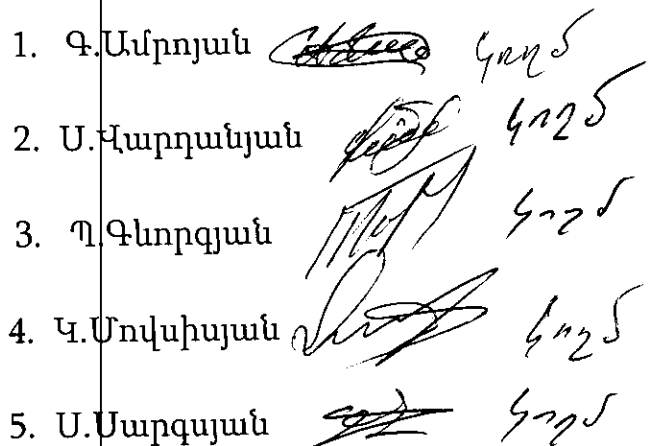 1. Գ.Ամրոյան կողմ
2. Ս.Վարդանյան կողմ
3. Պ.Գևորգյան կողմ
4. Կ.Մովսիսյան կողմ
5. Ս.Սարգսյան կողմ